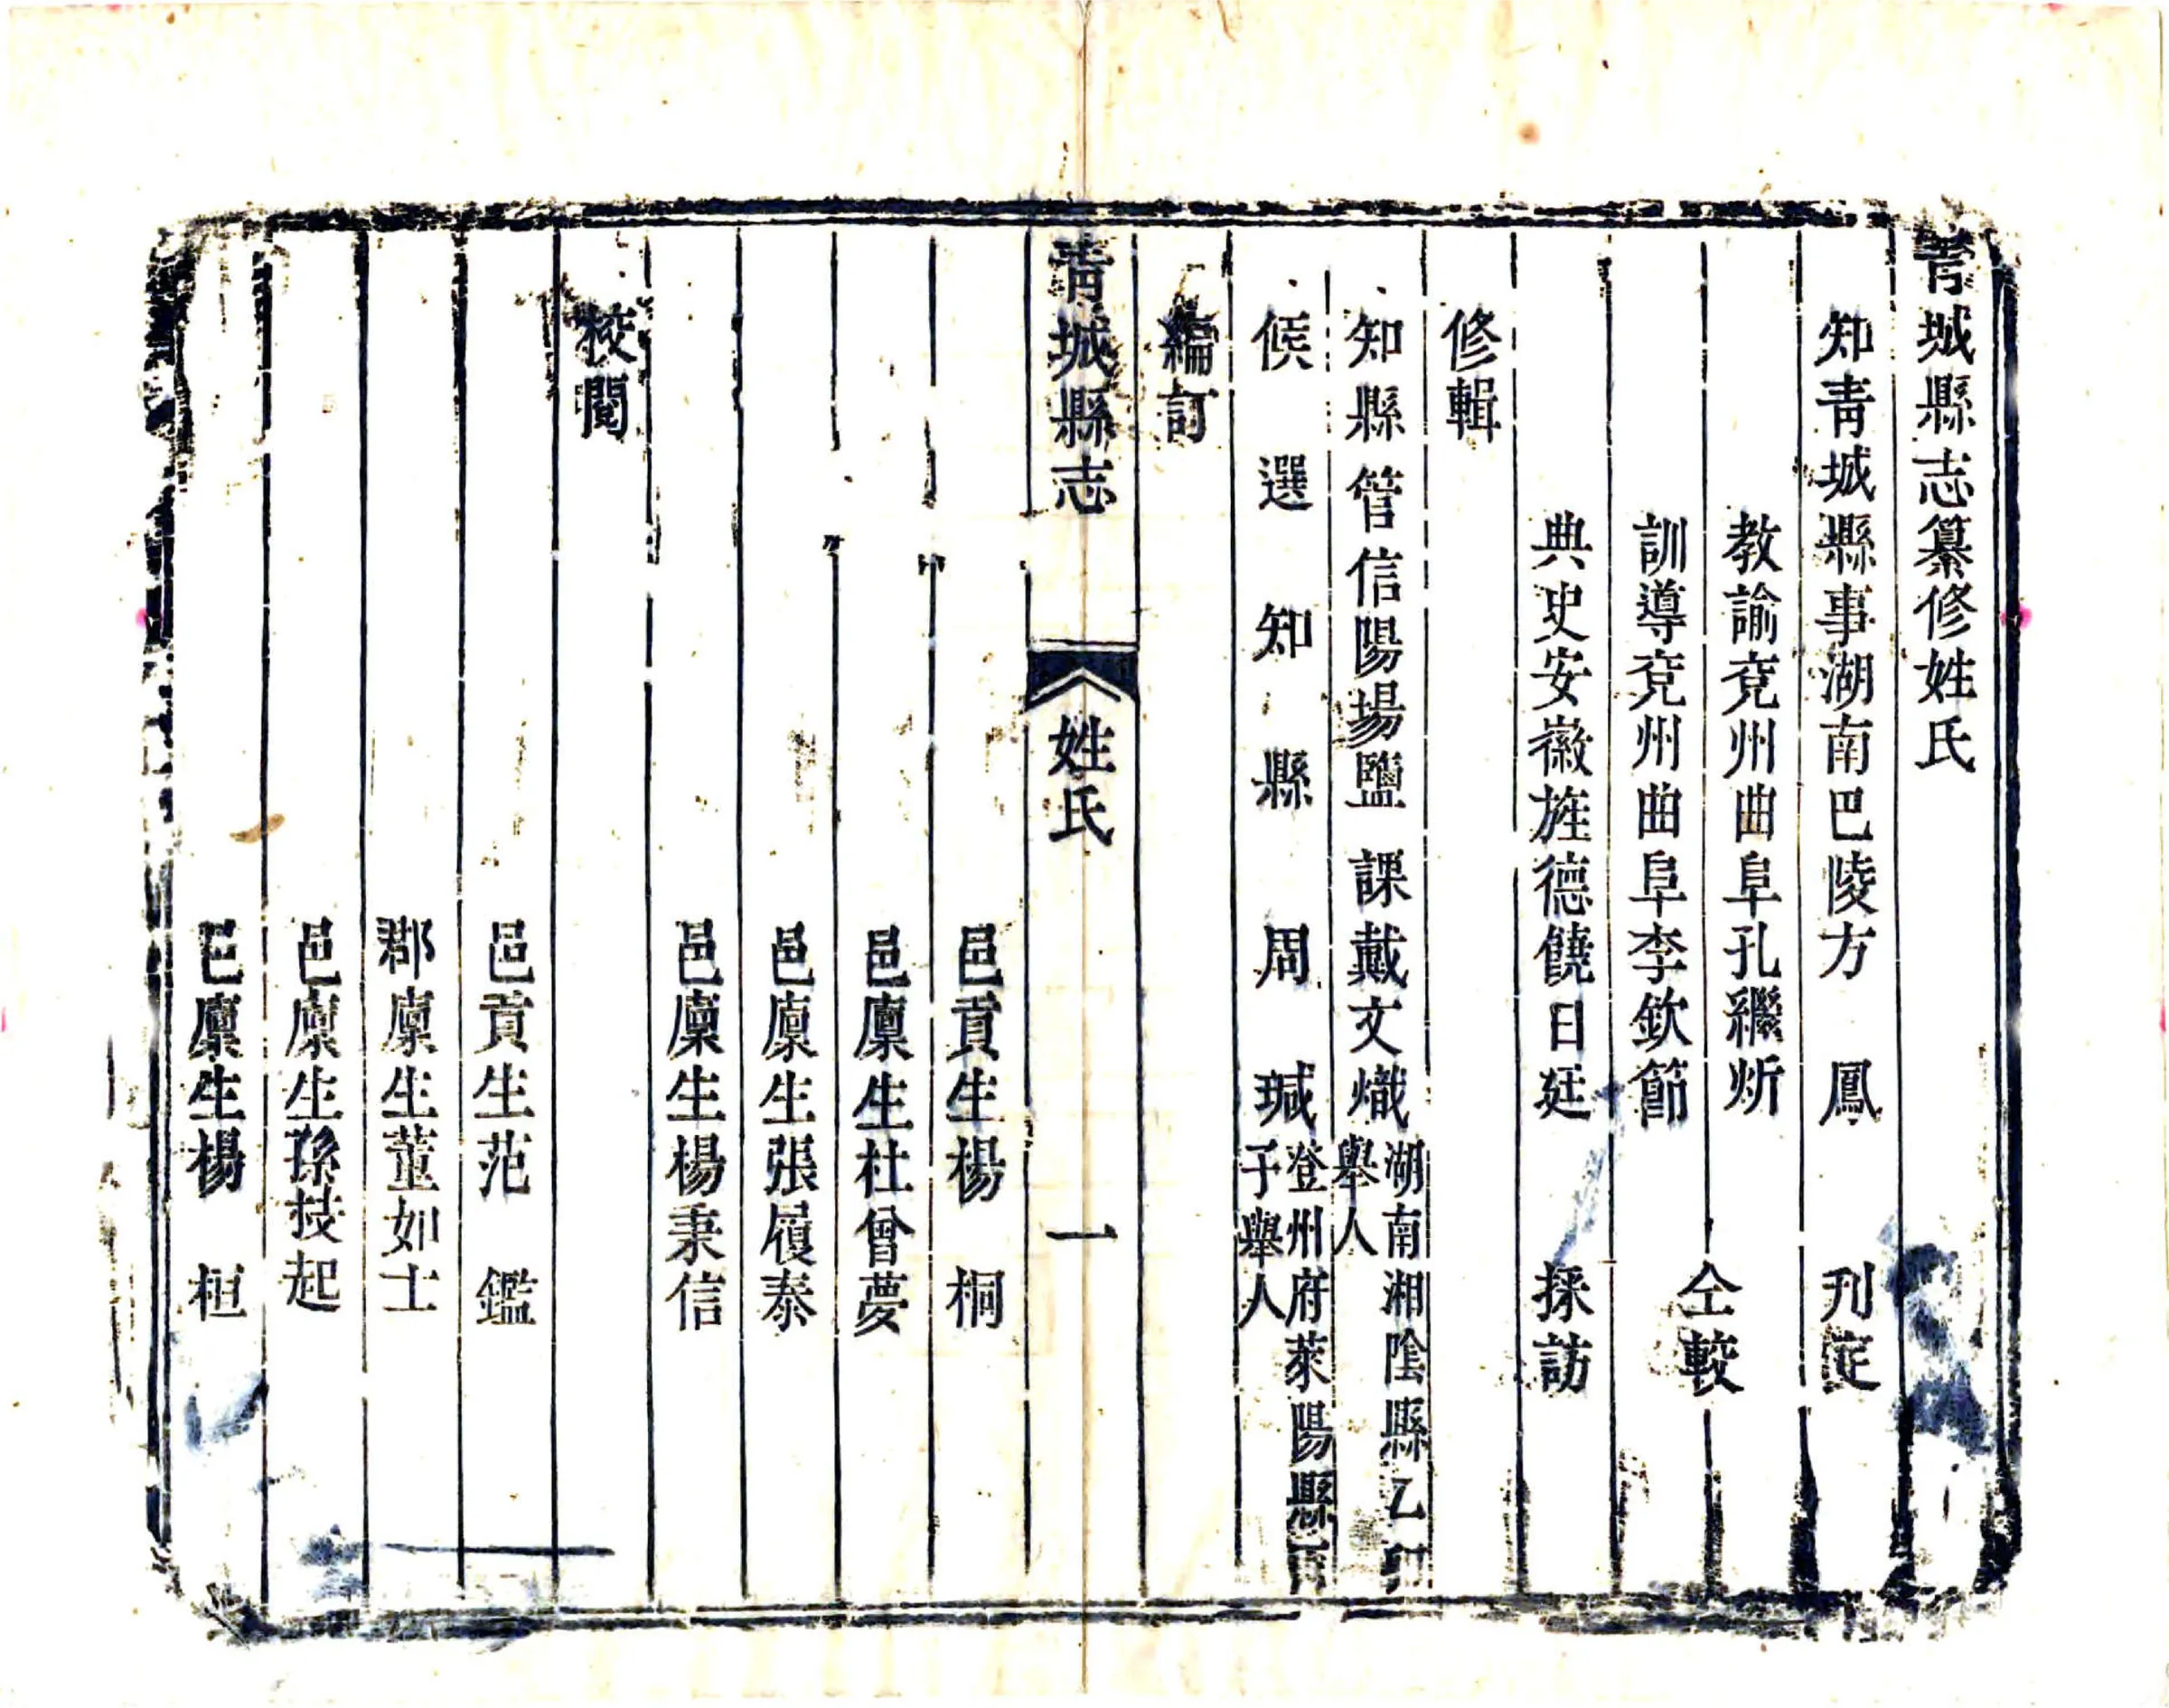 青城縣志纂修姓氏
知青城縣事湖南巴陵方　鳳　刋定
教諭兗州曲阜孔繼炘
仝較
訓導兗州曲阜李欽節
典史安徽旌德饒日廷　採訪
修輯
知縣管信陽場鹽課戴文熾湖南湘陰縣乙卯舉人
候選知縣周　瑊登州府萊陽縣丙子舉人
編訂
青城縣志　姓氏　一
邑貢生楊　桐
邑廪生杜曾夢
邑廪生張履泰
邑廪生楊秉信
校閱
邑貢生范　鑑
郡廪生董如士
邑廪生孫技起
邑廪生楊　桓